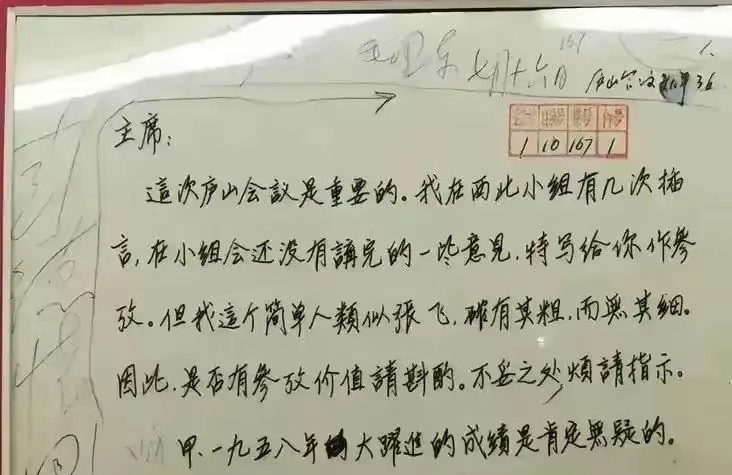 七月十六日
庐山会议文件36
1.
167
1 10 167 1
主席:
這次庐山会议是重要的。我在西北小组有几次插
言,在小组会还没有講完的一些意見,特写给你作參
攷。但我這个简单人類似張飞,確有其粗,而無其細。
因此,是否有參攷价值請斟酌。不妥之处,煩請指示。
甲、一九五八年大躍進的成績是肯定無疑的。